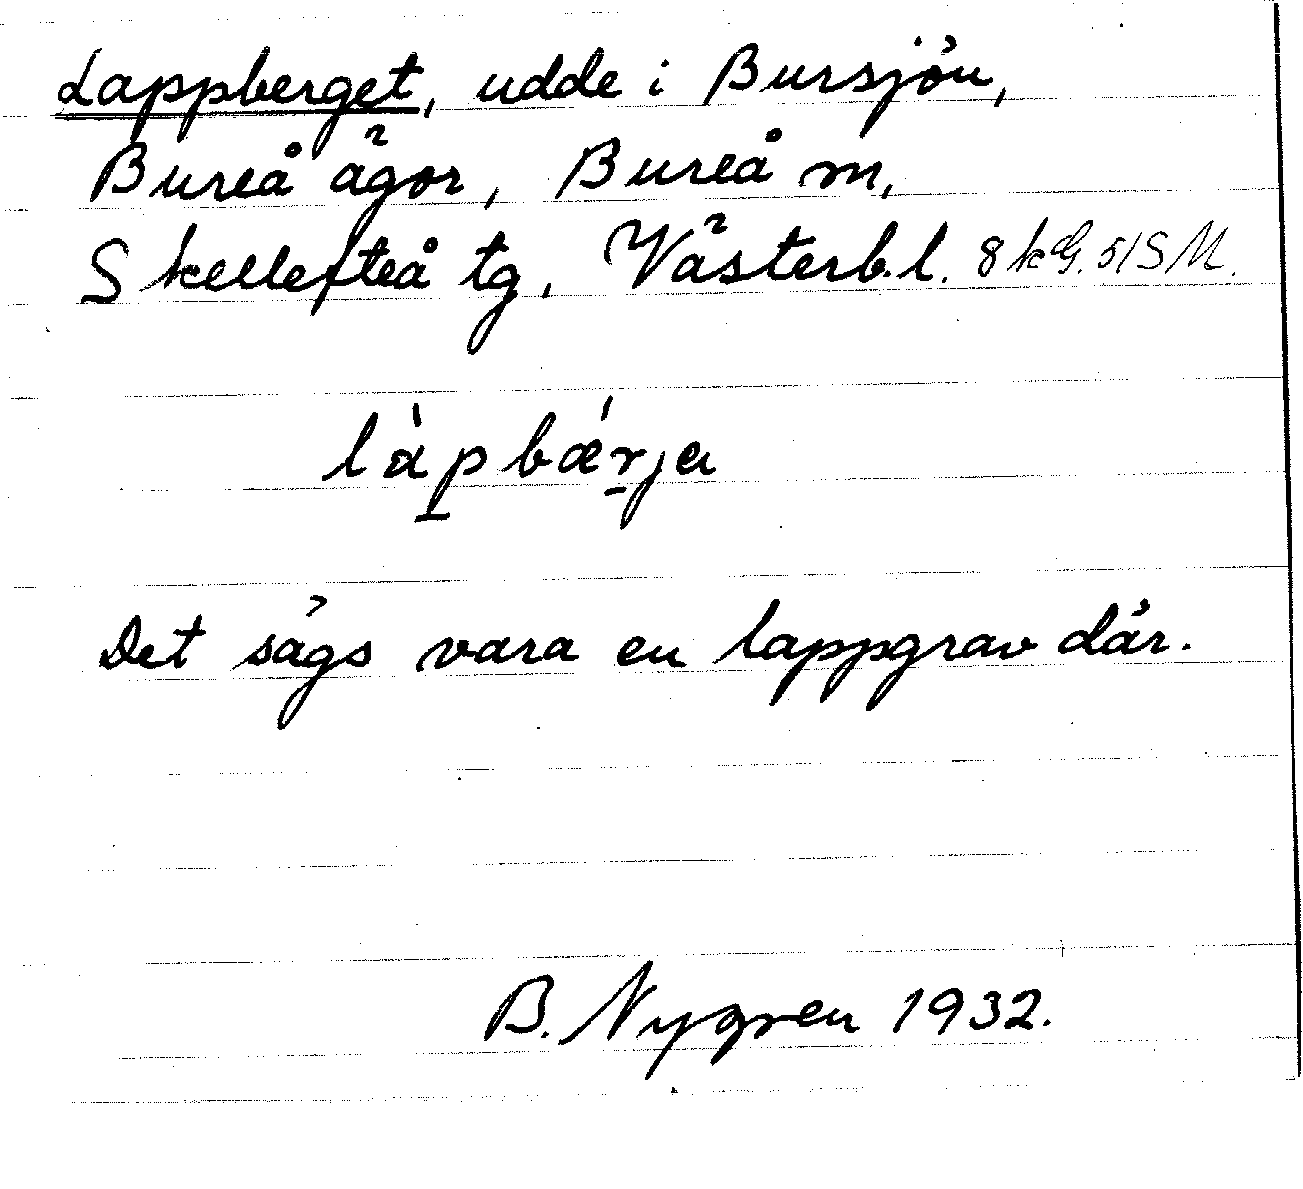 Lappberget, udde i Bursjön,
Bureå ägor, Bureå m,
Skellefteå tg, Västerb.l. 8 kG. 51SM.
làpbǽrja
Det sägs vara en lappgrav där.
B. Nygren 1932.